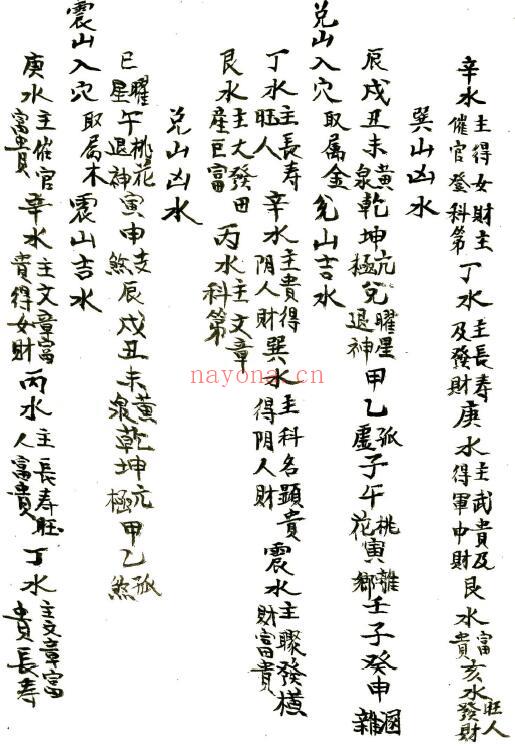 辛水主得女財主催官登科第 丁水主長寿及發財 庚水主武貴及得軍中財 艮水富貴 亥水旺人發財
巽山凶水
辰戌丑未黄泉 乾坤亢極 兌曜星退神 甲乙孤虛 子午桃花 寅離鄉 壬子癸申
兌山入穴取属金 兌山吉水
丁水主長寿旺人 辛水主貴得阴人財 巽水主科名顯貴得阴人財 震水主驟發橫財富貴
艮水主大發田産巨富 丙水主文章科第
兌山凶水
巳曜星 午桃花退神 寅申支煞 辰戌丑未黄泉 乾坤亢極 甲乙孤煞
震山入穴取属木 震山吉水
庚水主催官富貴 辛水主文章富貴得女財 丙水主長寿旺人富貴 丁水主文章富貴長寿
nayona.cn